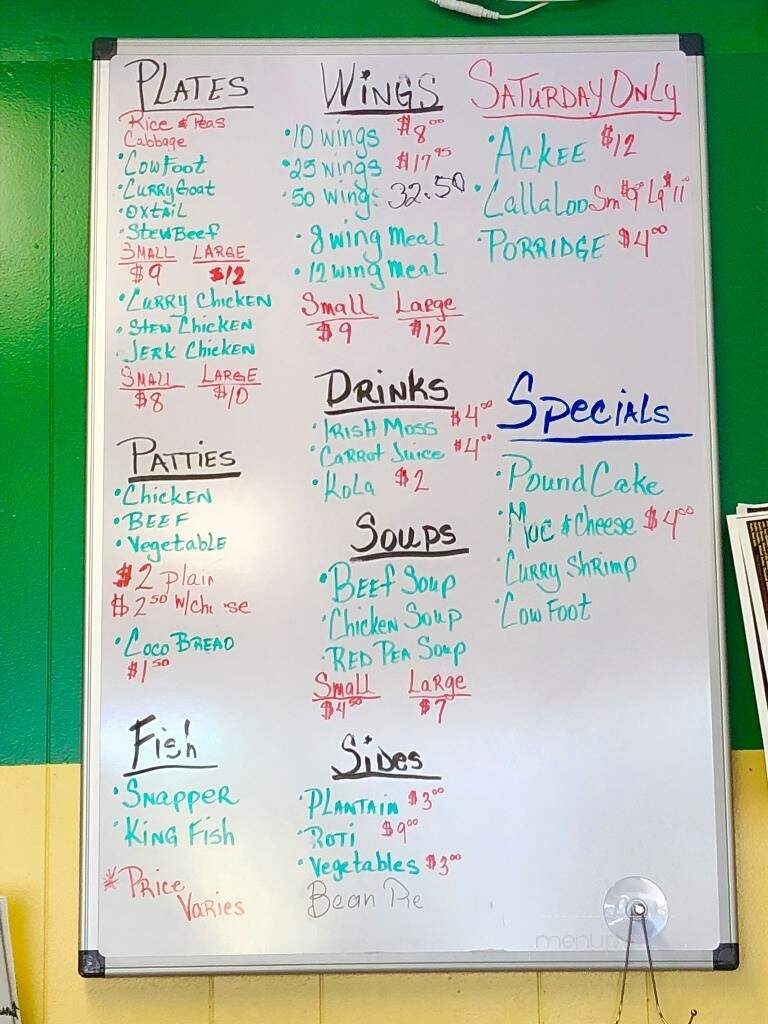 PLATES
Rice & Peas
Cabbage
• CowFoot
• CurryGoat
• OXTAIL
• Stew Beef
SMALL LARGE
$9 $12
• Curry Chicken
• Stew Chicken
• Jerk Chicken
SMALL LARGE
$8 $10
PATTIES
• Chicken
• BEEF
• Vegetable
$2 Plain
$2.50 w/che se
• Coco BREAD
$1.50
Fish
• Snapper
• King Fish
* Price
Varies
WINGS
• 10 wings $8.00
• 25 wings $17.95
• 50 wings 32.50
• 8 wing Meal
• 12 wing Meal
Small Large
$9 $12
DRINKS
• IRISH MOSS $4.00
• Carrot Juice $4.00
• Kola $2
Soups
• Beef Soup
• Chicken Soup
• RED PEA Soup
Small Large
$4.50 $7
Sides
• PLANTAIN $3.00
• ROTI $9.00
• Vegetables $3.00
Bean Pie
SATURDAY ONLY
• ACKEE $12
• Callaloo Sm $9 Lg $11
• PORRIDGE $4.00
Specials
• Pound Cake
• Mac & Cheese $4.00
• Curry Shrimp
• Cow Foot